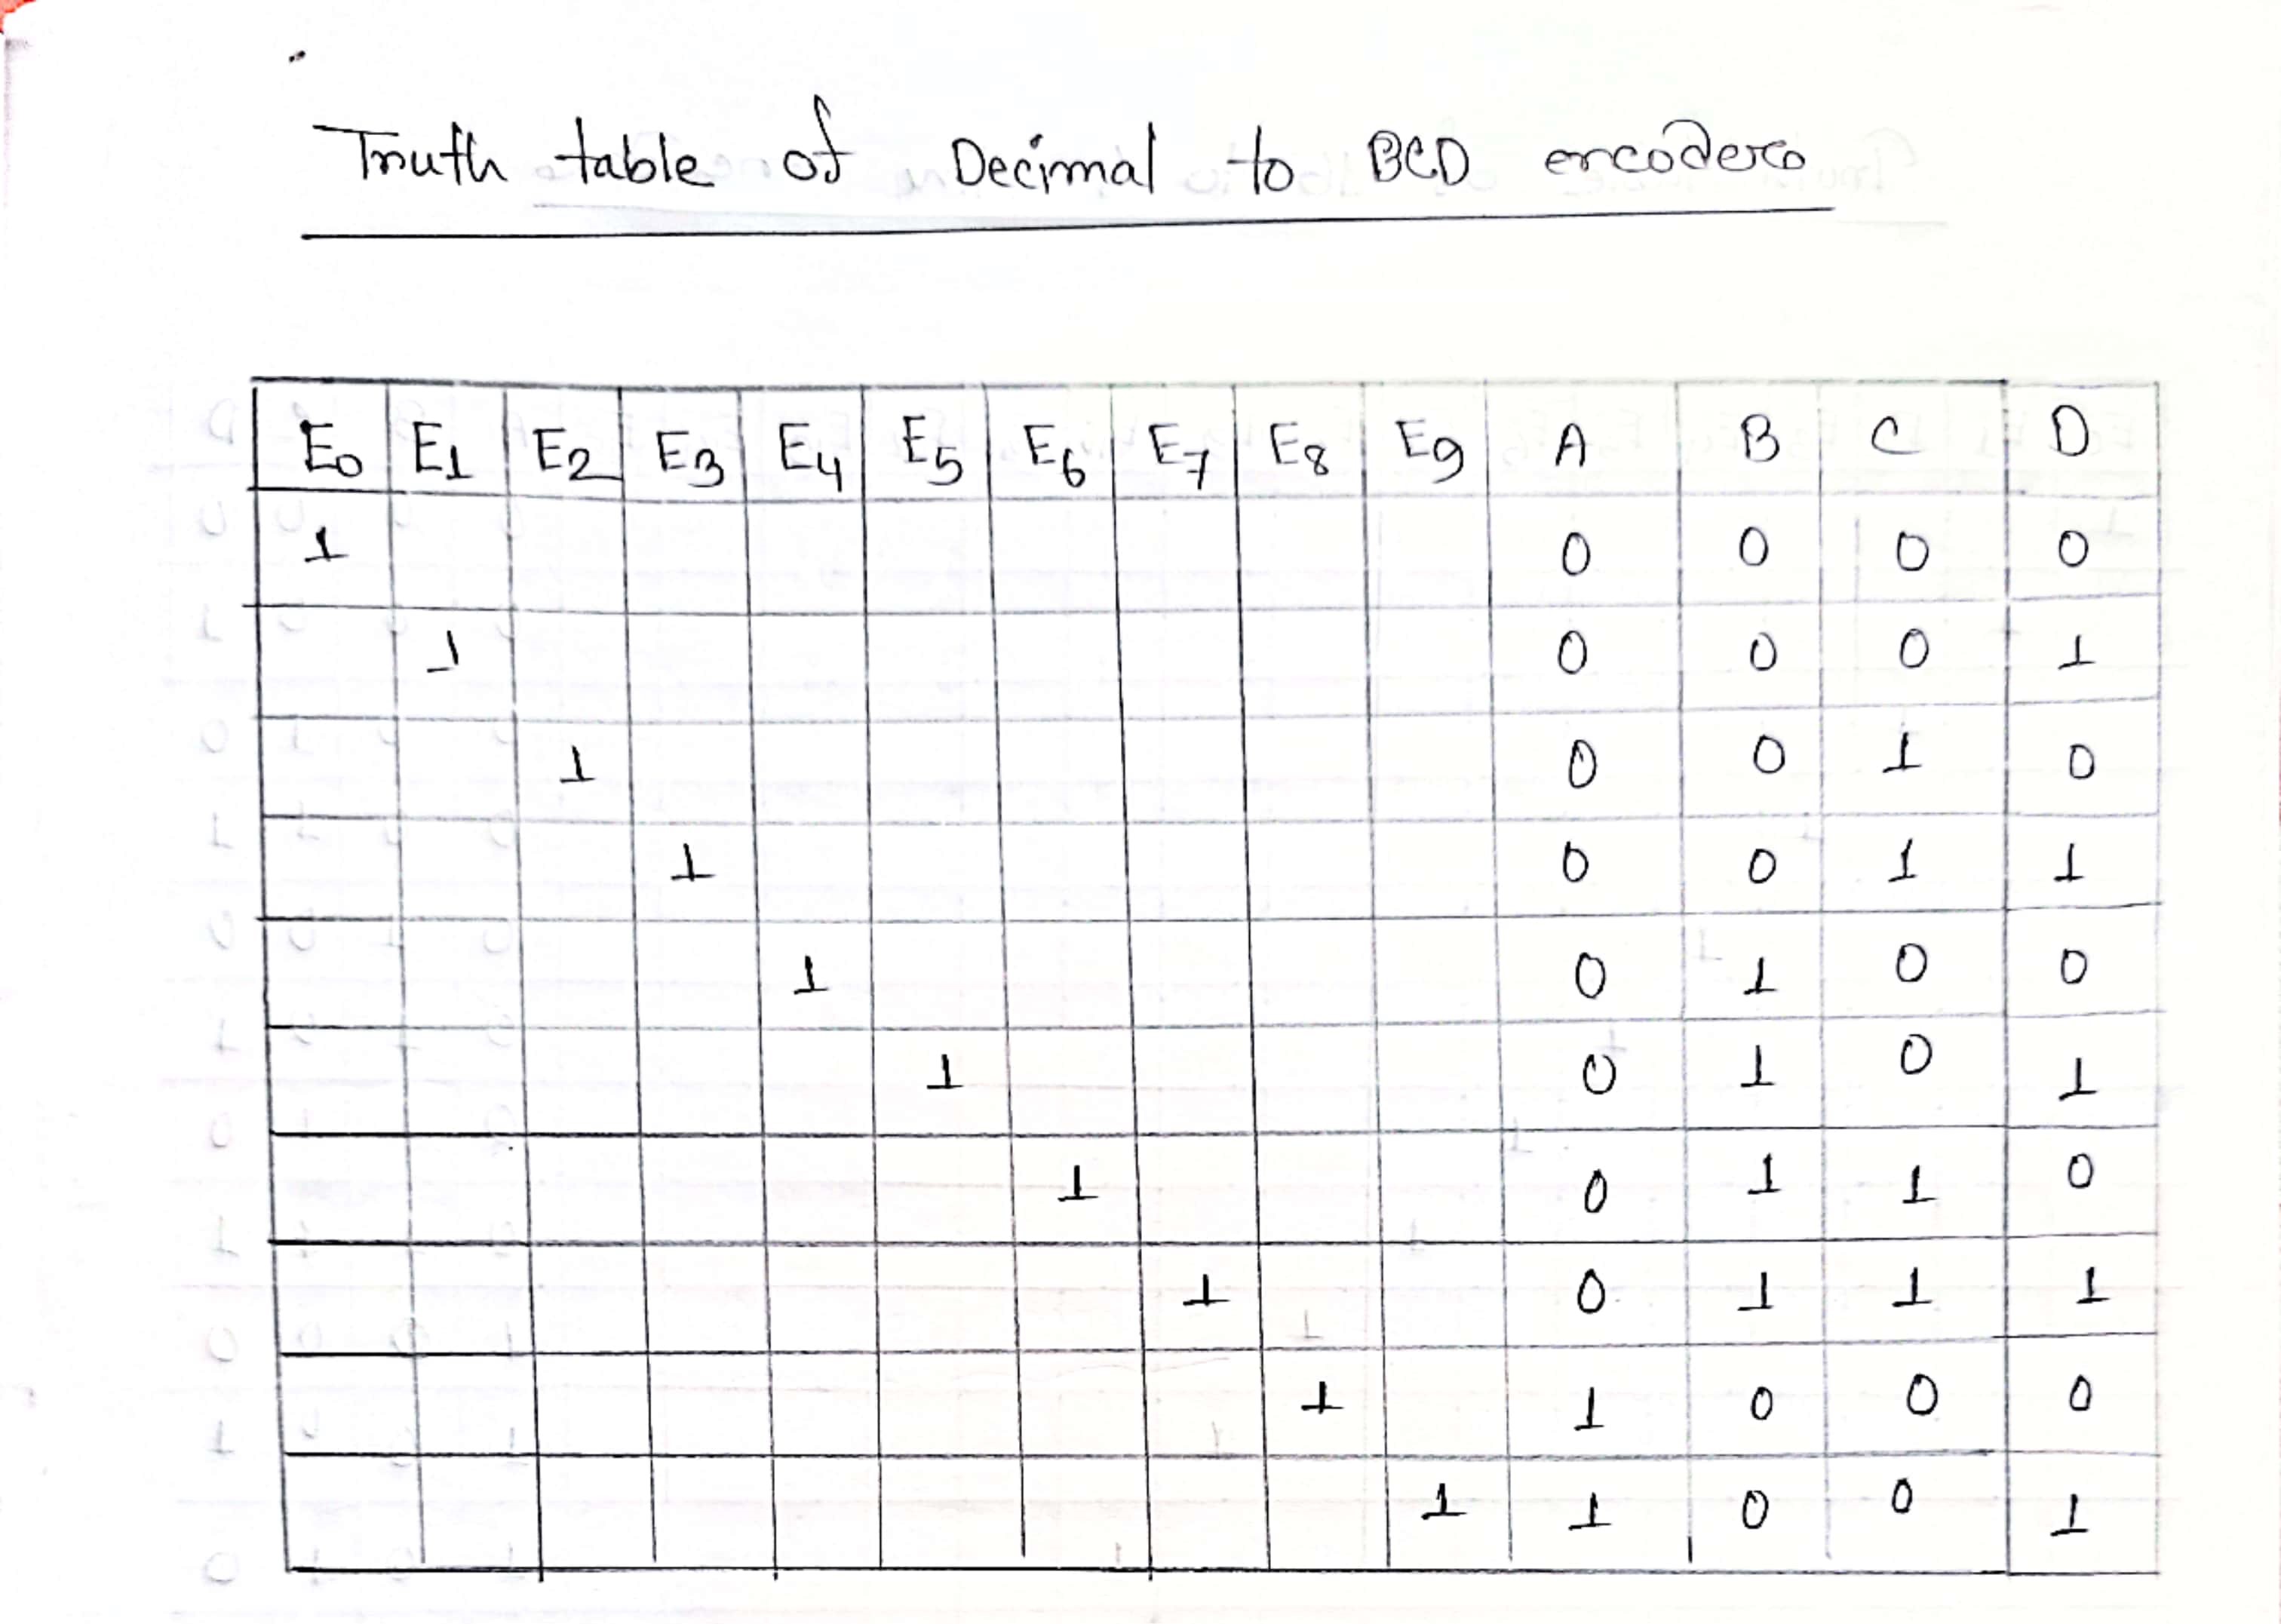 Truth table of Decimal to BCD encoders
E0 E1 E2 E3 E4 E5 E6 E7 E8 E9 A B C D
1 0 0 0 0
1 0 0 0 1
1 0 0 1 0
1 0 0 1 1
1 0 1 0 0
1 0 1 0 1
1 0 1 1 0
1 0 1 1 1
1 1 0 0 0
1 1 0 0 1